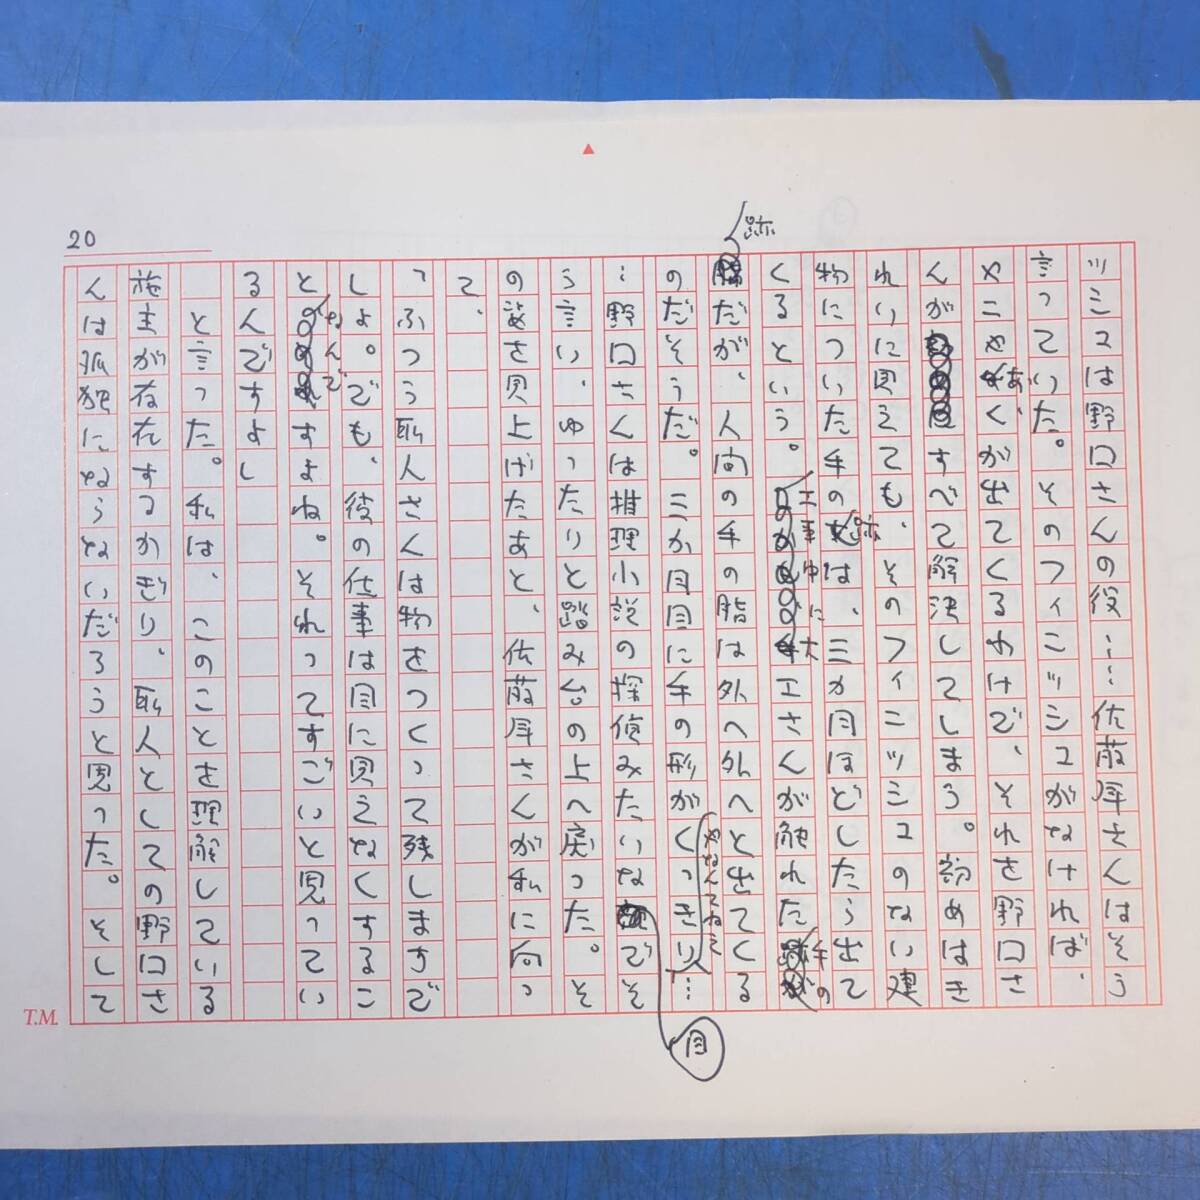 20
ッシュは野口さんの役……佐藤さんはそう
言っていた。そのフィニッシュがなければ、
やニやあくが出てくるわけで、それを野口さ
んがすべて解決してしまう。初めはき
れいに見えても、そのフィニッシュのない建
物についた手の跡は、三カ月ほどしたら出て
くるという。工事中に、大工さんが触れた手の
跡だが、人間の手の脂は外へ外へと出てくる
のだそうだ。三か月目に手の形がくっきり…
…野口さんは推理小説の探偵みたいな目でそ
う言い、ゆったりと踏み台の上へ戻った。そ
の姿を見上げたあと、佐藤さんが私に向っ
て、
「ふつう職人さんは物をつくって残しますで
しょ。でも、彼の仕事は目に見えなくするこ
となんですよね。それってすごいと思ってい
るんですよ」
と言った。私は、このことを理解している
施主が存在するかぎり、職人としての野口さ
んは孤独にならないだろうと思った。そして
T.M.